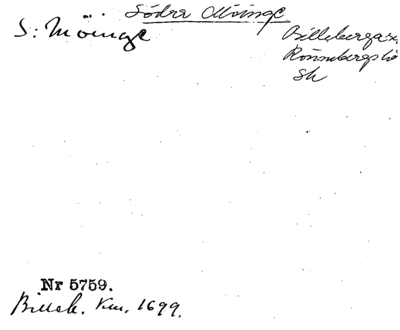 Södra Möinge
S: Möinge
Billeberga s:n
Rönnebergs hd
Sk
Nr 5759.
Billeb. Km. 1699.